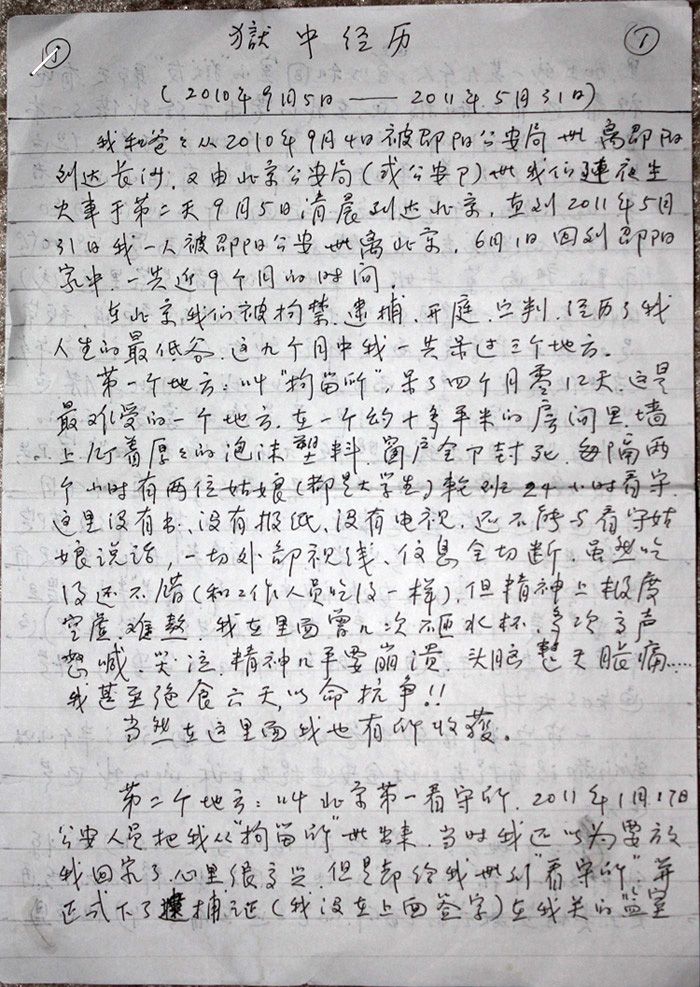 ① 獄中经历 ①
(2010年9月5日——2011年5月31日)
我和爸爸从2010年9月4日被邵阳公安局带离邵阳
到达长沙，又由北京公安局(或公安部)带我们連夜坐
火車于第二天9月5日清晨到达北京，直到2011年5月
31日我一人被邵阳公安带离北京，6月1日回到邵阳
家中，一共近9个月的时间，
在北京，我们被拘禁、逮捕、开庭、宣判，经历了我
人生的最低谷，这九个月中我一共呆过三个地方。
第一个地方：叫“拘留所”，呆了四个月零12天，这是
最难受的一个地方，在一个约十多平米的房间里，墙
上打着厚厚的泡沫塑料，窗户全部封死，每隔两
个小时有两位姑娘(都是大学生)轮班24小时看守，
这里没有书、没有报纸、没有电视，还不能与看守姑
娘说话，一切外部视线、信息全切断，虽然吃
得还不错(和工作人员吃得一样)，但精神上极度
空虚，难熬，我在里面曾几次砸水杯，多次高声
怒喊、哭泣，精神几乎要崩溃，头脑整天胀痛……
我甚至绝食六天，以命抗争!!
当然在这里面我也有所收獲。
第二个地方：叫北京第一看守所，2011年1月17日
公安人员把我从“拘留所”带出来，当时我还以为要放
我回家了，心里很高兴，但是却给我带到“看守所”，并
正式下了逮捕证(我没在上面签字)在我关的“监室